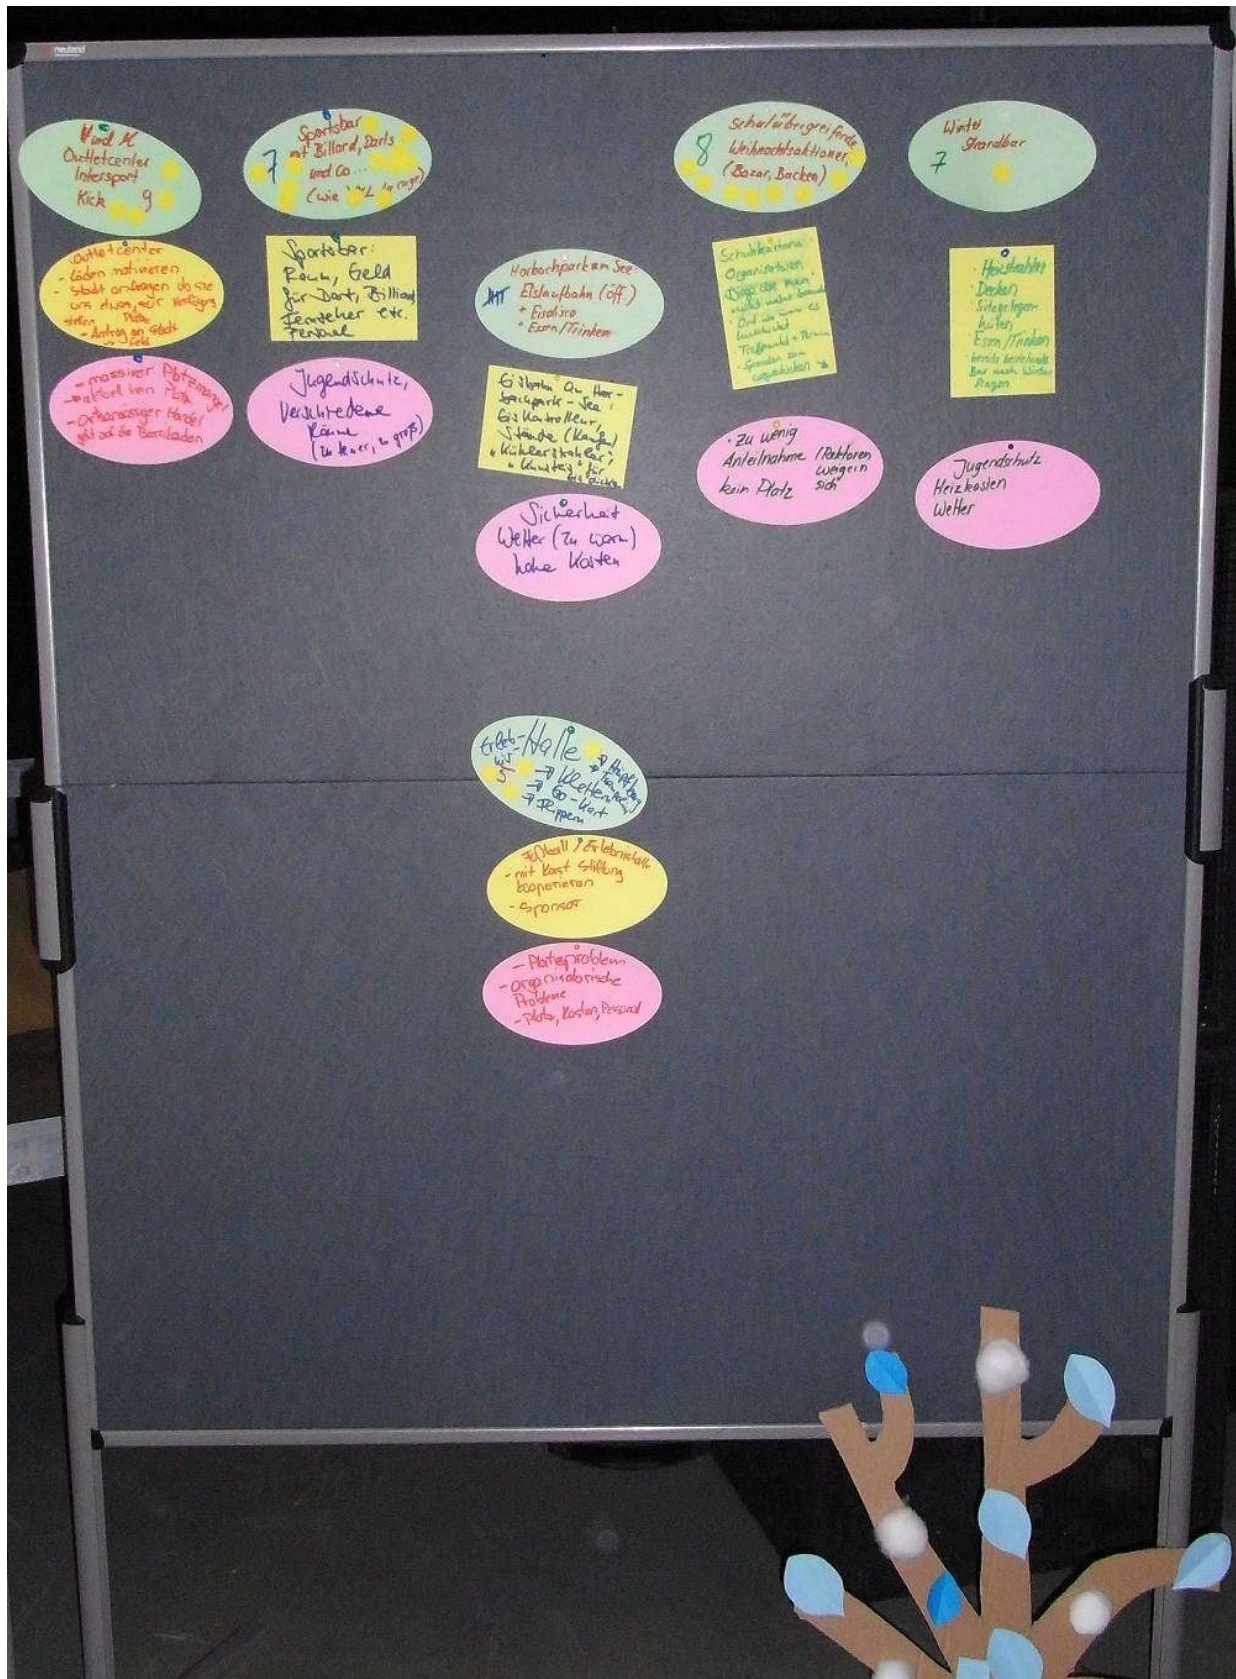 neuland
und
Outletcenter
Intersport
Kick 9
Outletcenter
- Läden motivieren
- Stadt anfragen ob sie
uns zur Verfügung
stellen Platz
- Antrag an Stadt
Geld
- massiver Platzmangel
aktuell kein Platz
- Ortsansässiger Handel
geht auf die Barrikaden
Sportsbar
7 mit Billard, Darts
und Co...
(wie
Sportsbar:
Raum, Geld
für Dart, Billiard
Fernseher etc.
Personal
Jugendschutz,
Verschiedene
Räume
(zu teuer, zu groß)
Horbachpark am See:
Eislaufbahn (öff.)
+ Eisdisco
+ Essen/Trinken
Eisbahn am Hor-
bachpark-See:
Eiskontrolleur,
Stände (Kaufen)
für
Sicherheit
Wetter (zu warm)
hohe Kosten
Schulübergreifende
8 Weihnachtsaktionen
(Bazar, Backen)
Organisatoren
Treffpunkt + Termin
Spenden zum
· Zu wenig
Anteilnahme
weigern
kein Platz sich
Winter
7 Strandbar
· Heizstrahler
· Decken
· Sitzgelegen-
heiten
Essen/Trinken
· bereits bestehende
Bar nach Winter
fragen
Jugendschutz
Heizkosten
Wetter
Erleb-
nis- Halle
5
→ Hüpfburg
→ Trampolin
→ Klettern
→ Go-Kart
→ Flippern
Fußball / Erlebnishalle
- mit Kast Stiftung
kooperieren
- Sponsor
- Platzproblem
- organisatorische
Probleme
- Platz, Kosten, Personal